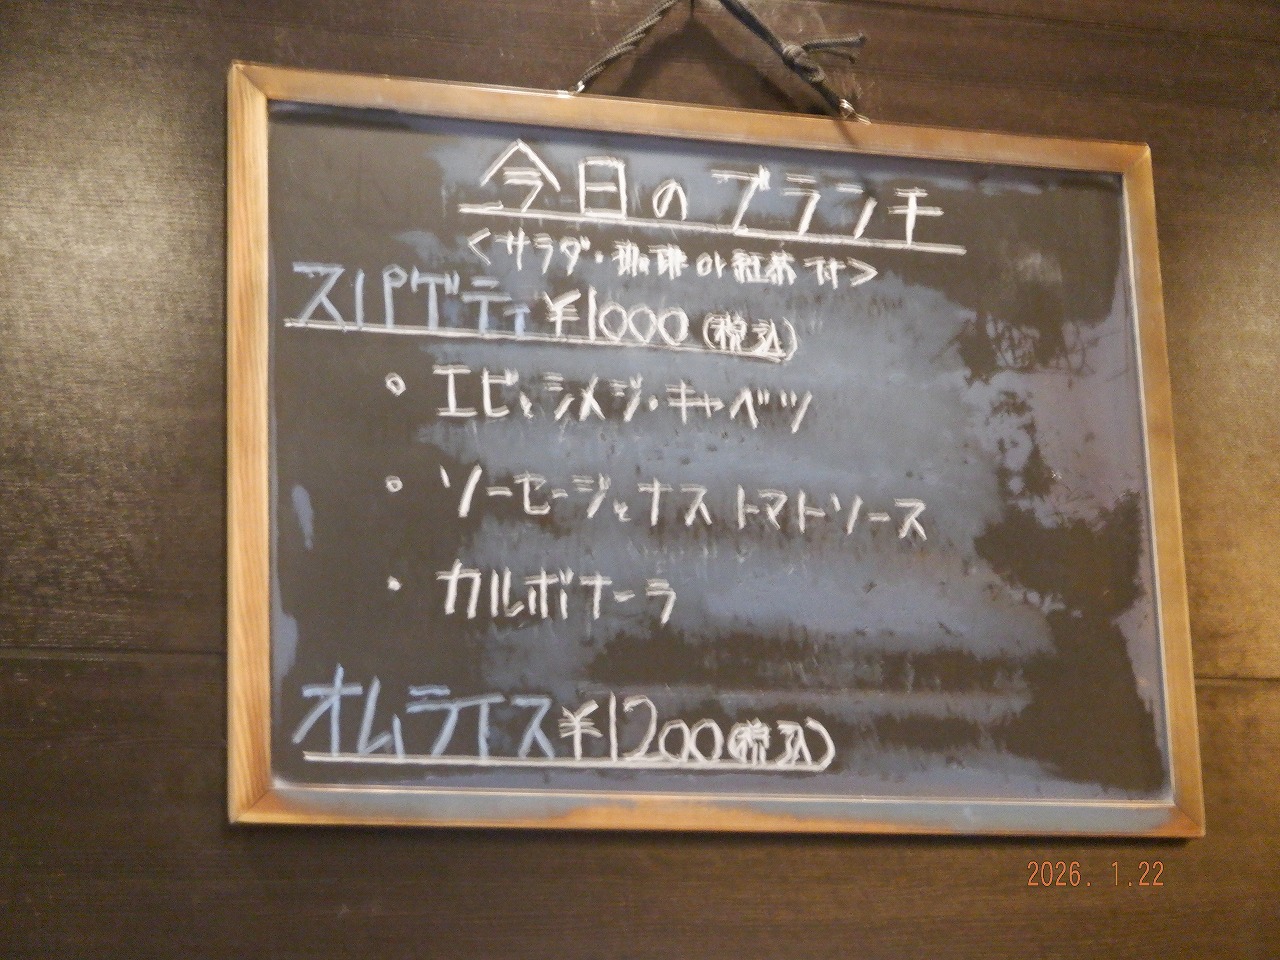 今日のブランチ
<サラダ・珈琲 or 紅茶 付>
スパゲティ ¥1000 (税込)
• エビとシメジ・キャベツ
• ソーセージとナス トマトソース
• カルボナーラ
オムライス ¥1200 (税込)
2026. 1.22